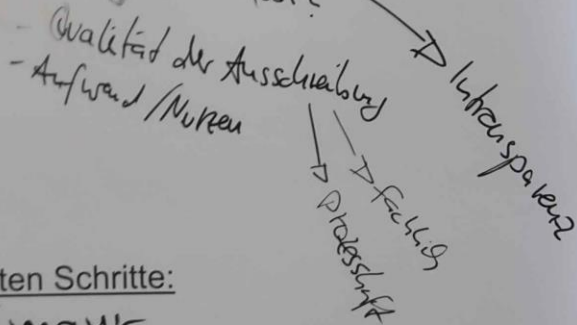 - Qualität der Ausschreibung
- Aufwand/Nutzen
Intransparenz
fachlich
ten Schritte: